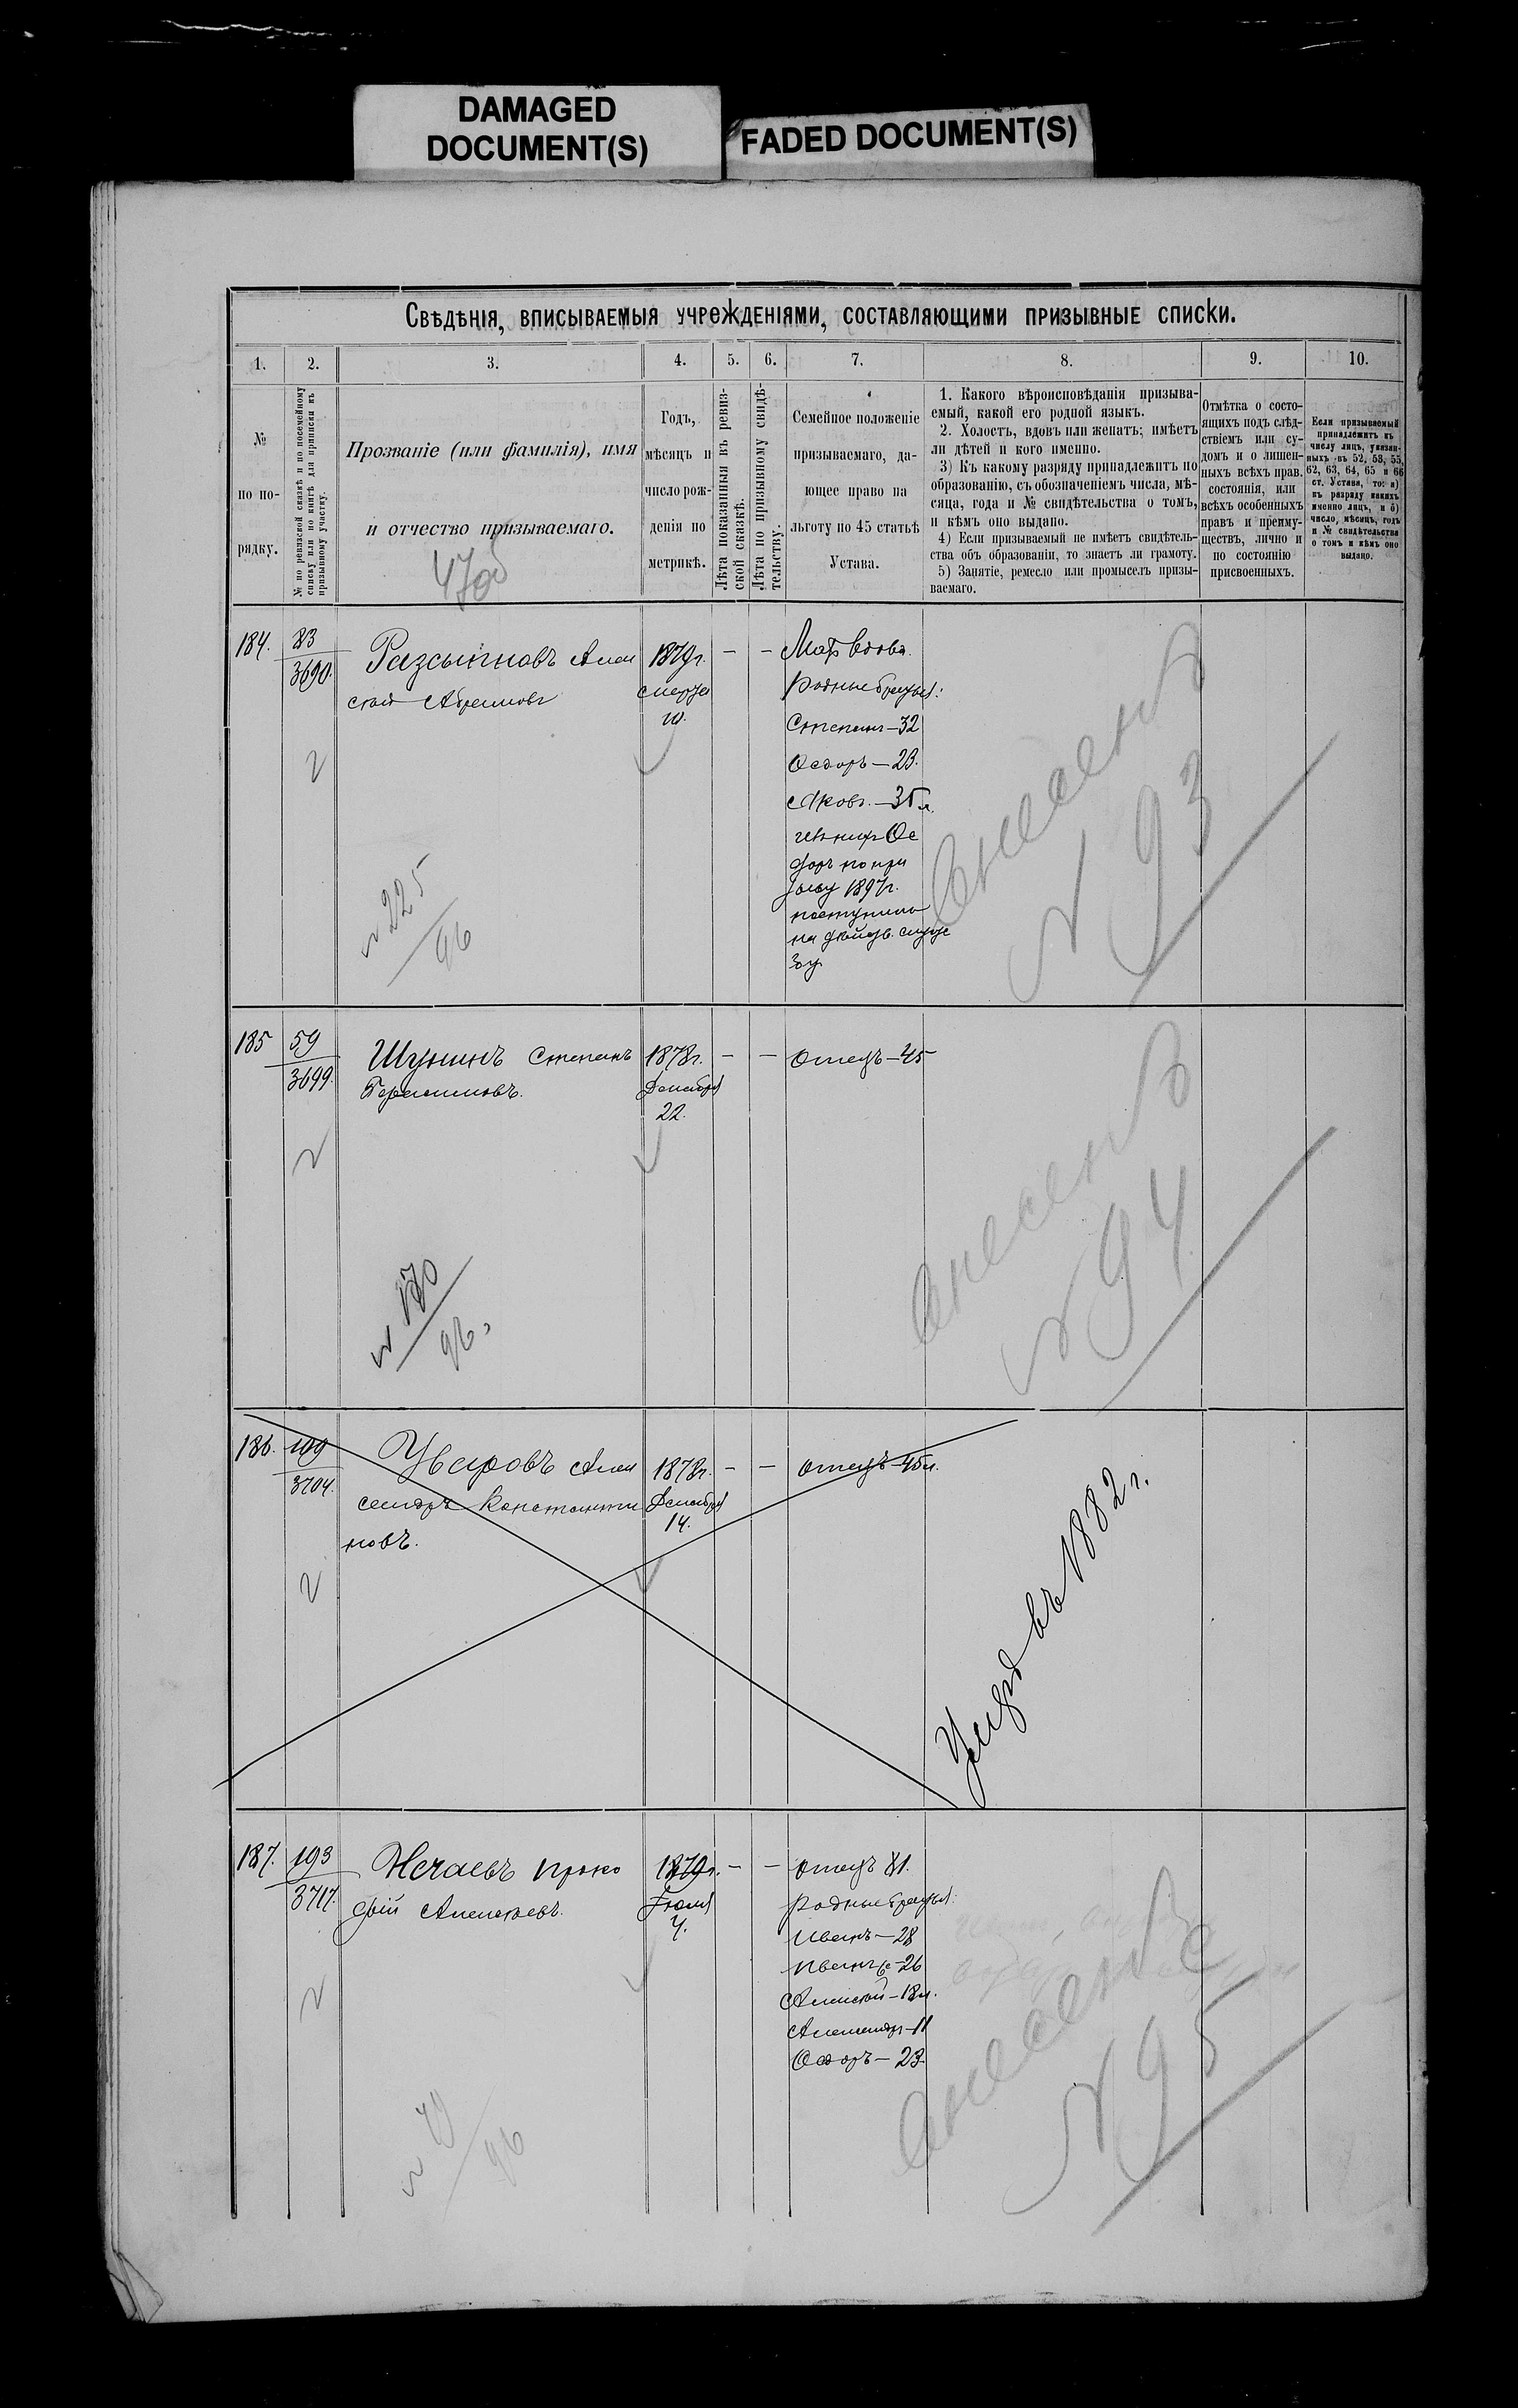 DAMAGED
DOCUMENT(S)
FADED DOCUMENT(S)
Свѣдѣнія, вписываемыя учрежденіями, составляющими призывные списки.
1. 2. 3. 4. 5. 6. 7. 8. 9. 10.
№
по по-
рядку.
№ по ревизской сказкѣ и по посемейному
списку или по книгѣ для приписки къ
призывному участку.
Прозваніе (или фамилія), имя
и отчество призываемаго.
Годъ,
мѣсяцъ и
число рож-
денія по
метрикѣ.
Лѣта показанныя въ ревиз-
ской сказкѣ.
Лѣта по призывному свидѣ-
тельству.
Семейное положеніе
призываемаго, да-
ющее право на
льготу по 45 статьѣ
Устава.
1. Какого вѣроисповѣданія призыва-
емый, какой его родной языкъ.
2. Холостъ, вдовъ или женатъ; имѣетъ
ли дѣтей и кого именно.
3) Къ какому разряду принадлежитъ по
образованію, съ обозначеніемъ числа, мѣ-
сяца, года и № свидѣтельства о томъ,
и кѣмъ оно выдано.
4) Если призываемый не имѣетъ свидѣтель-
ства объ образованіи, то знаетъ ли грамоту.
5) Занятіе, ремесло или промыселъ призы-
ваемаго.
Отмѣтка о состо-
ящихъ подъ слѣд-
ствіемъ или су-
домъ и о лишен-
ныхъ всѣхъ прав.
состоянія, или
всѣхъ особенныхъ
правъ и преиму-
ществъ, лично и
по состоянію
присвоенныхъ.
Если призываемый
принадлежитъ къ
числу лицъ, указан-
ныхъ въ 52, 53, 55,
62, 63, 64, 65 и 66
ст. Устава, то: а)
къ разряду какихъ
именно лицъ, и б)
число, мѣсяцъ, годъ
и № свидѣтельства
о томъ и кѣмъ оно
выдано.
470
184.
83
3690.
Разсыпновъ Алек
сѣй Абрамовъ
1879г.
Марта
10.
– –
Мать вдова.
Родные братья:
Степанъ – 32
Ѳедоръ – 23.
Яковъ. – 35 л.
изъ нихъ Ѳе
доръ по при
зыву 1897г.
поступилъ
на дѣйств. служ
бу
№ 225
96
№ 93
185
59
3699.
Шунинъ Степанъ
Герасимовъ.
1878г.
Декабря
22.
– –
Отецъ – 45
№ 170
96.
№ 94
186.
109
3704.
Уваровъ Алек
сандръ Константи
новъ.
1878г.
Декабря
14.
– –
Отецъ – 45 л.
Умеръ въ 1882 г.
187.
193
3717.
Нечаевъ Проко
фій Алексѣевъ.
1879г.
Іюля
4.
– –
Отецъ 81.
Родные братья:
Иванъ – 28
Иванъ – 26
Алексѣй – 18 л.
Александръ – 11
Ѳедоръ – 23.
96
№ 95